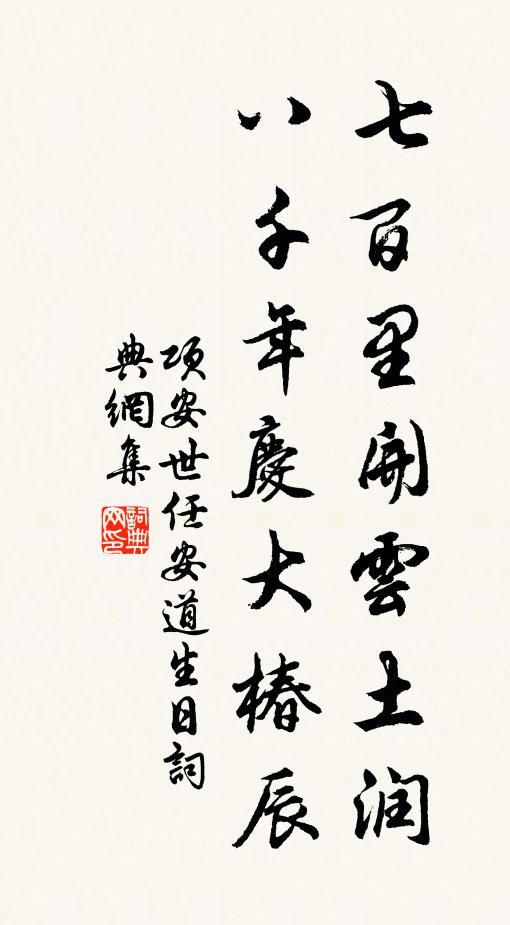 七百里開雲土润
八千年慶大椿辰
項安世任安道生日詞
典網集
詞典
网印